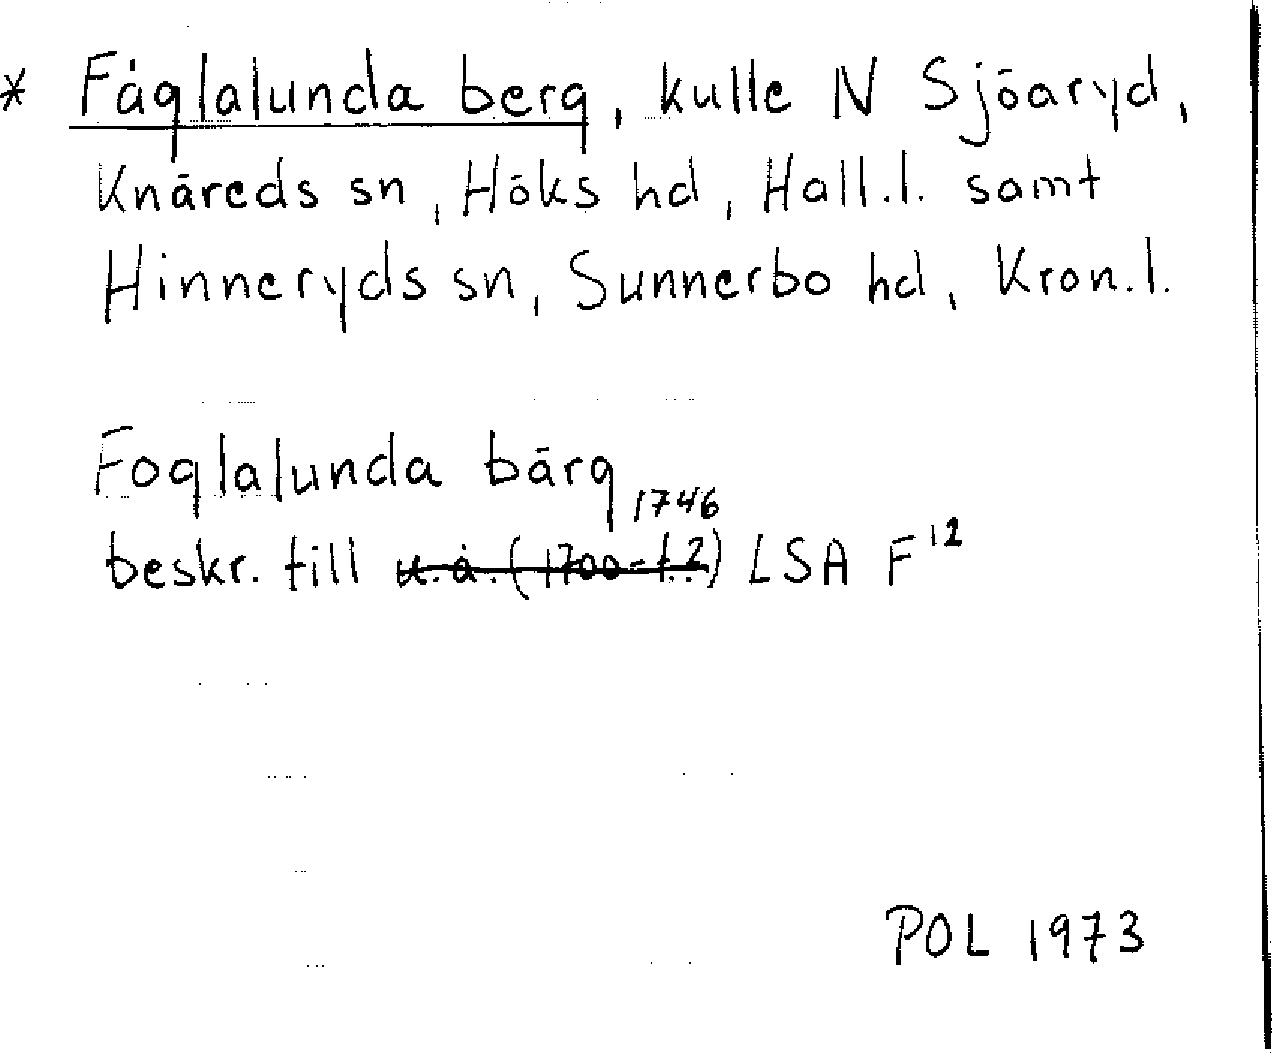 * Fåglalunda berg, kulle N Sjöaryd,
Knäreds sn, Höks hd, Hall.l. samt
Hinneryds sn, Sunnerbo hd, Kron.l.
Foglalunda bärg
1746
beskr. till u.å. (1700-t.?) LSA F 12
POL 1973